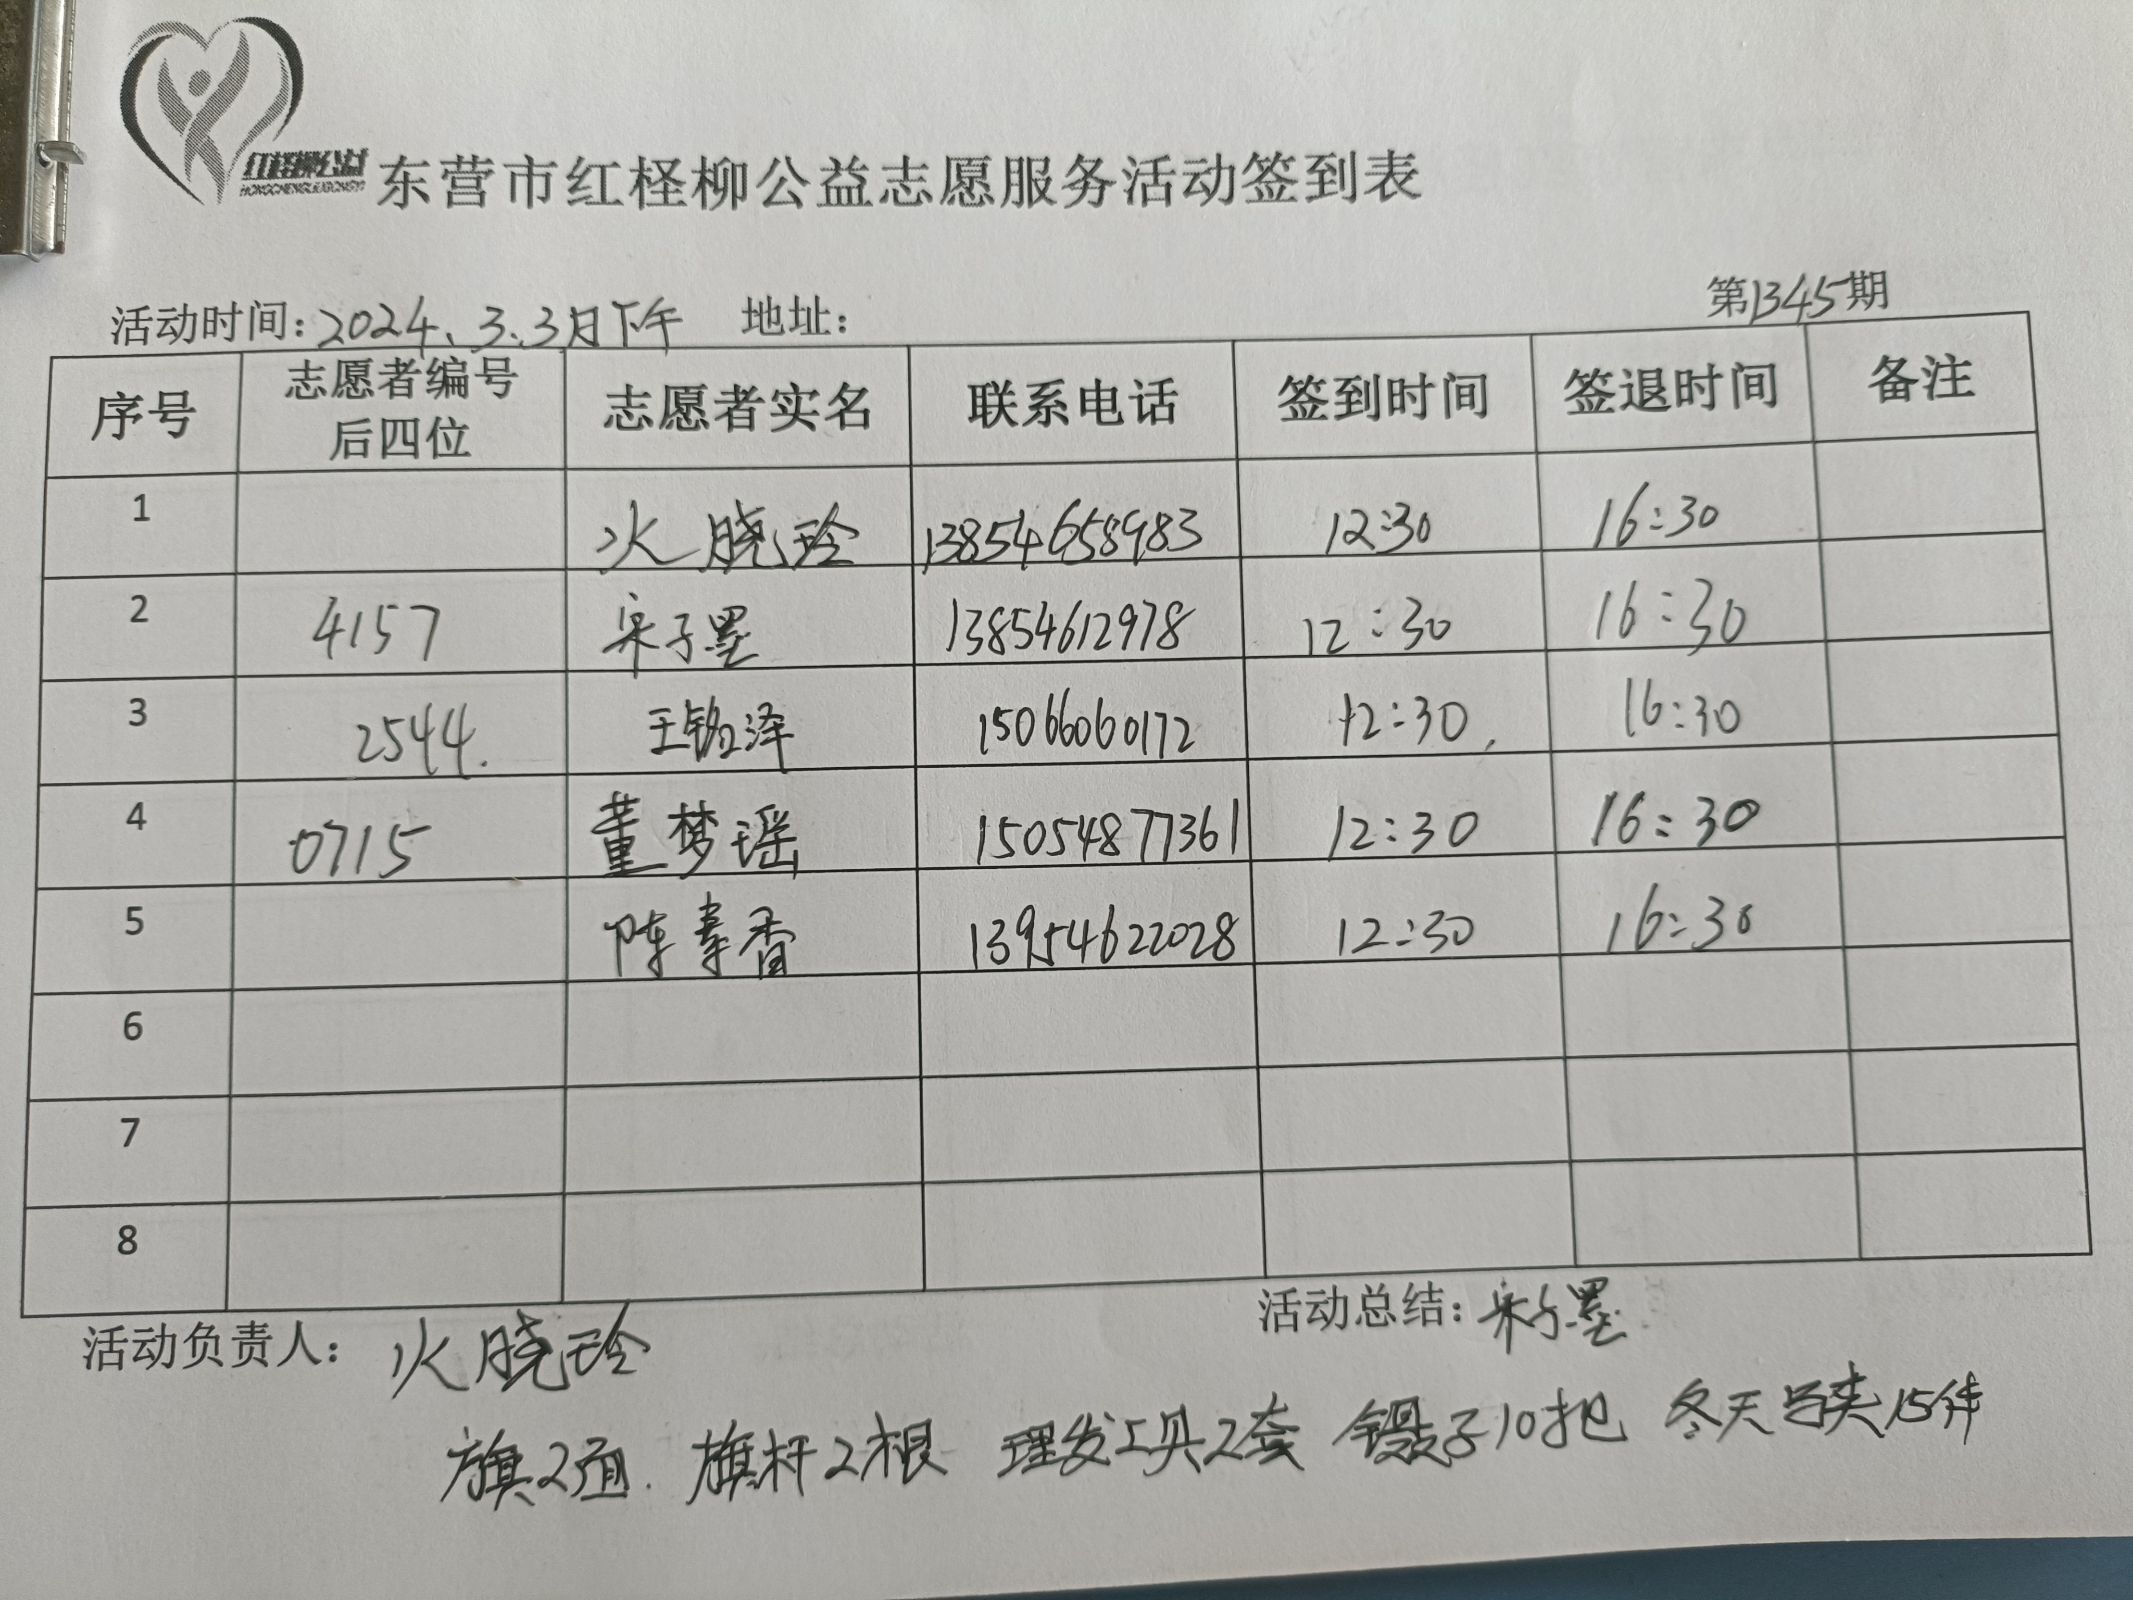 红柽柳公益
HONGCHENGLIUGONGYI
东营市红柽柳公益志愿服务活动签到表
活动时间:2024、3、3月下午 地址: 第1345期
序号 志愿者编号后四位 志愿者实名 联系电话 签到时间 签退时间 备注
1 火晓玲 13854658983 12:30 16:30
2 4157 宋子墨 13854612978 12:30 16:30
3 2544. 王铭泽 15066060172 12:30 16:30
4 0715 董梦瑶 15054877361 12:30 16:30
5 陈素香 13954622028 12:30 16:30
6
7
8
活动负责人: 火晓玲 活动总结: 宋子墨
旗2面. 旗杆2根 理发工具2套 镊子10把 冬天马夹15件